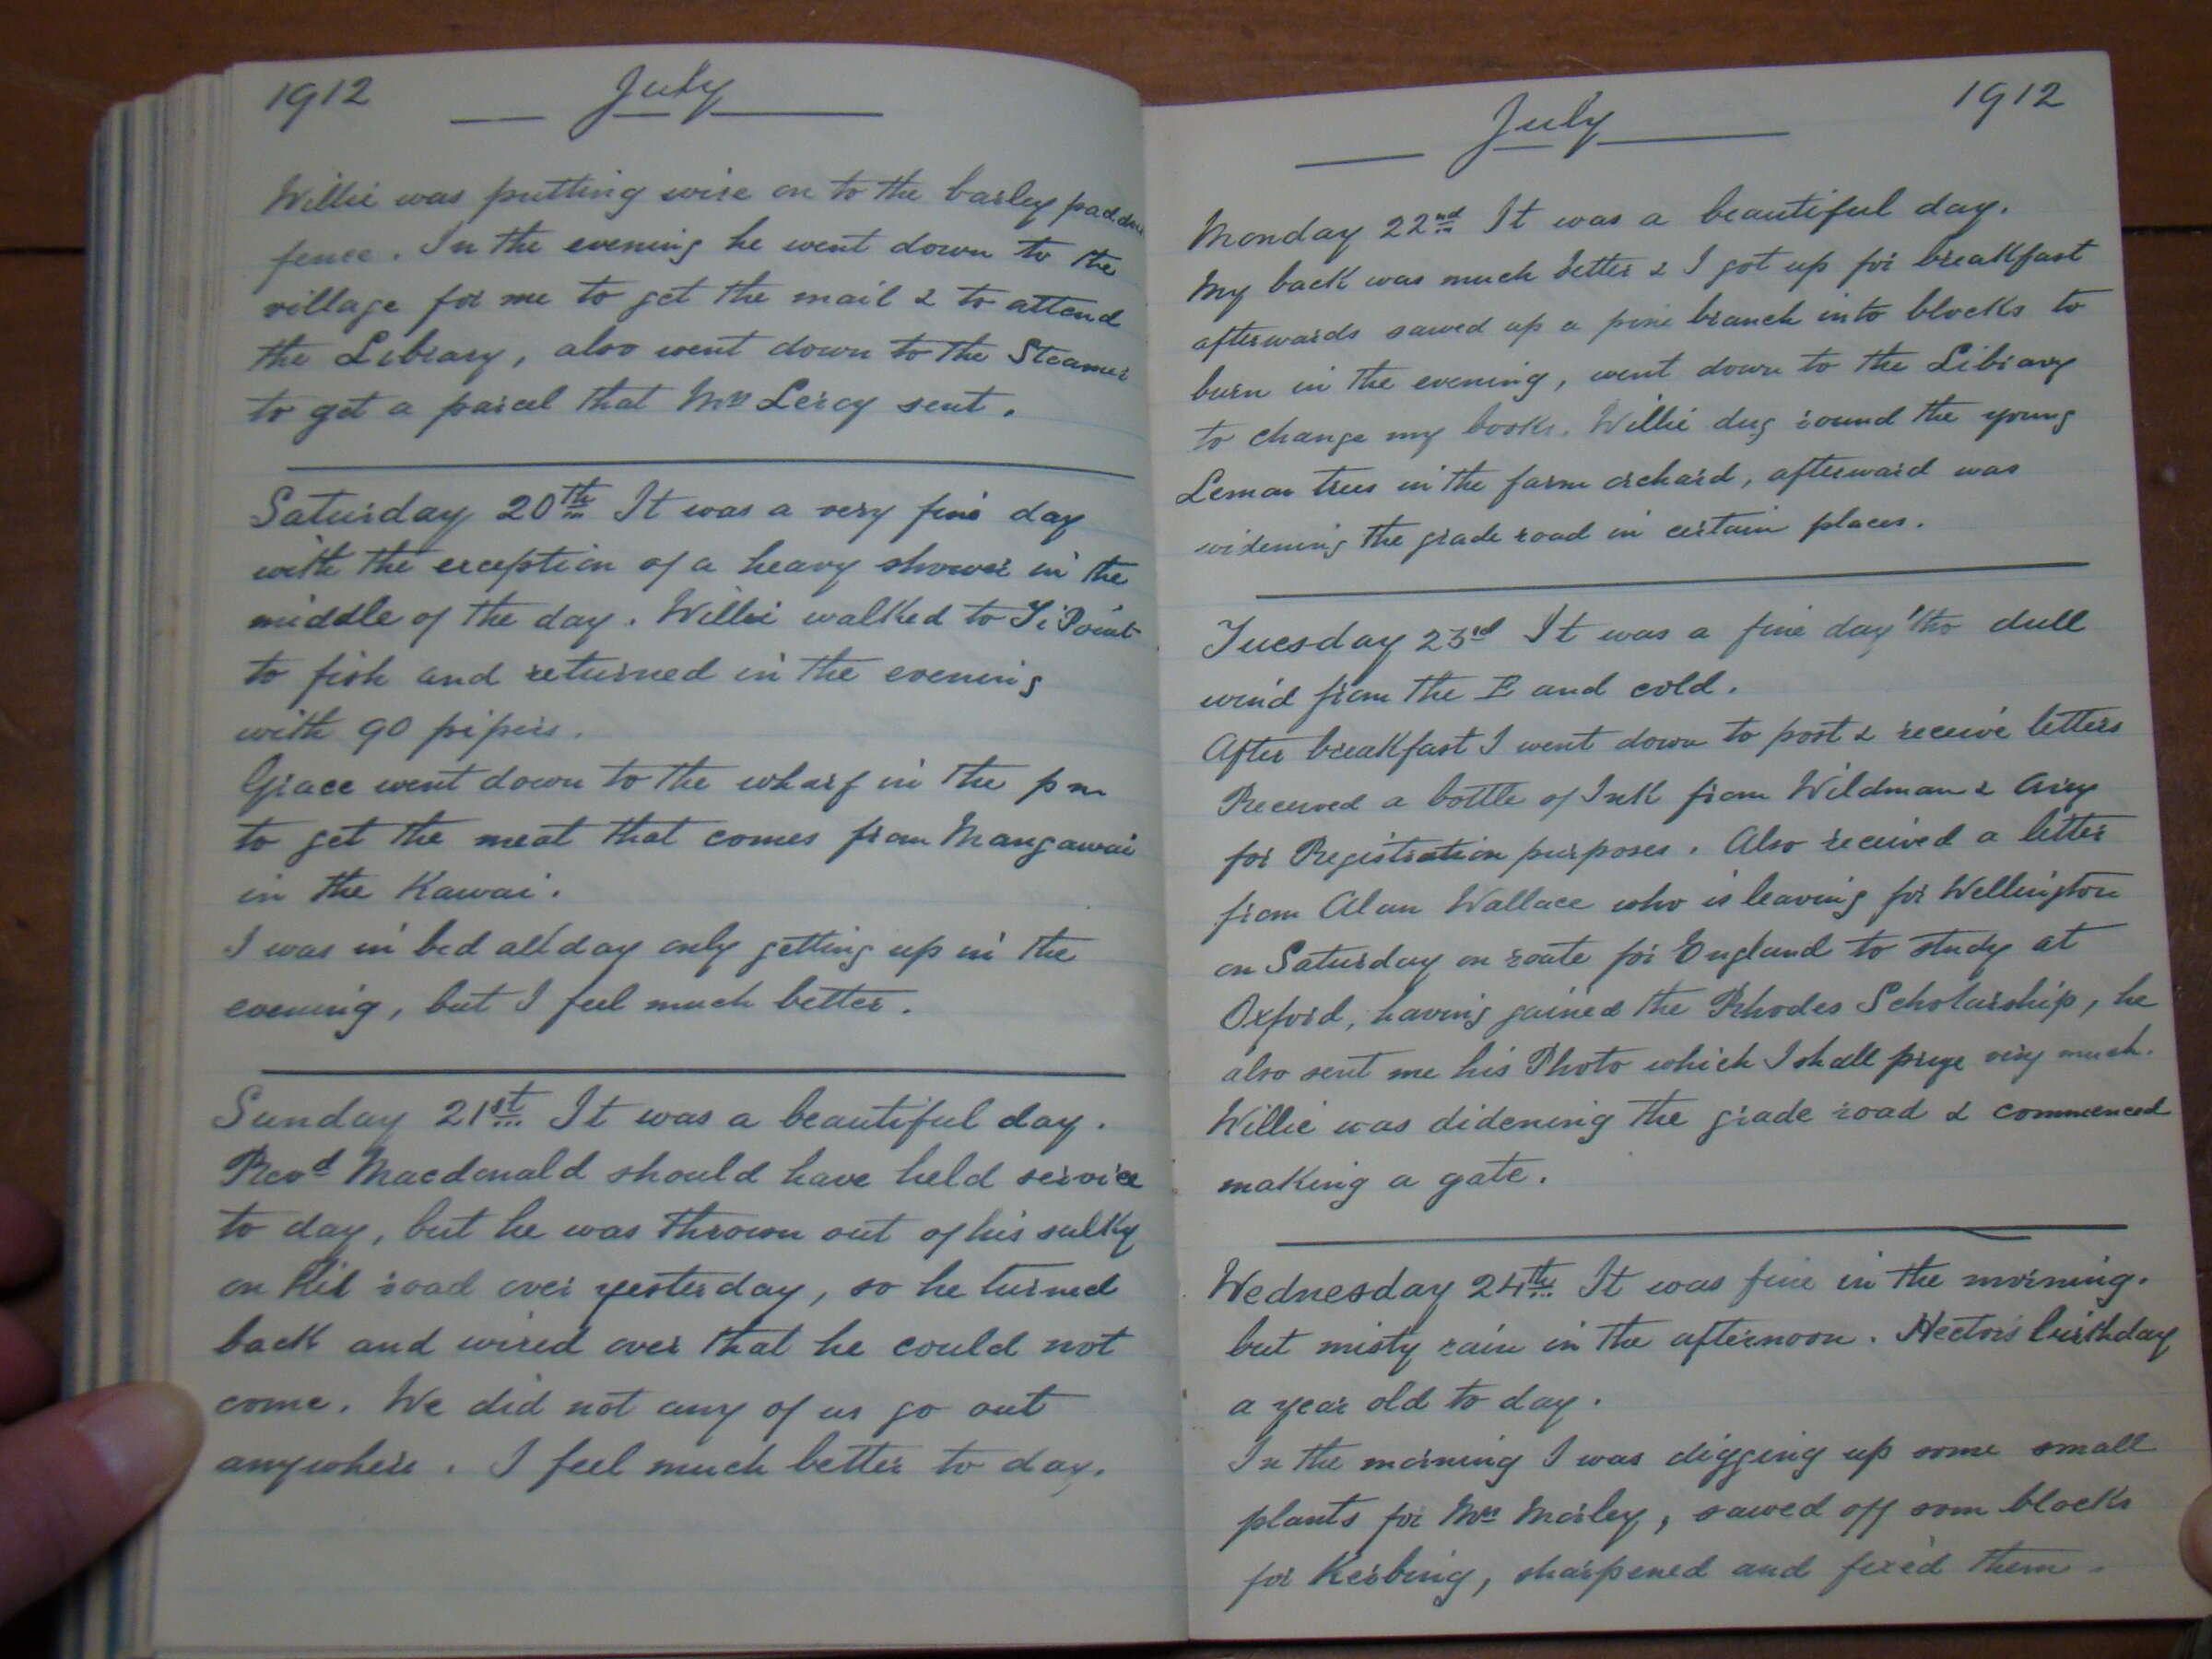 1912 July
Willie was putting wire on to the barley paddock
fence. In the evening he went down to the
village for me to get the mail & to attend
the Library, also went down to the Steamer
to get a parcel that Mrs Leroy sent.
Saturday 20th It was a very fine day
with the exception of a heavy shower in the
middle of the day. Willie walked to Ti Point
to fish and returned in the evening
with 90 pipers.
Grace went down to the wharf in the pm
to get the meat that comes from Mangawai
in the Kawai.
I was in bed all day only getting up in the
evening, but I feel much better.
Sunday 21st It was a beautiful day.
Revd Macdonald should have held service
to day, but he was thrown out of his sulky
on road over yesterday, so he turned
back and wired over that he could not
come. We did not any of us go out
anywhere. I feel much better to day.
July 1912
Monday 22nd It was a beautiful day.
My back was much better & I got up for breakfast
afterwards sawed up a pine branch into blocks to
burn in the evening, went down to the Library
to change my books. Willie dug round the young
Lemon trees in the farm orchard, afterward was
widening the grade road in certain places.
Tuesday 23rd It was a fine day 'tho dull
wind from the E and cold.
After breakfast I went down to post & receive letters
Received a bottle of Ink from Wildman & Arey
for Registration purposes. Also received a letter
from Alan Wallace who is leaving for Wellington
on Saturday on route for England to study at
Oxford, having gained the Rhodes Scholarship, he
also sent me his Photo which I shall prize very much.
Willie was didening the grade road & commenced
making a gate.
Wednesday 24th It was fine in the morning.
but misty rain in the afternoon. Hectors birthday
a year old to day.
In the morning I was digging up some small
plants for Mrs Morley, sawed off som blocks
for Kerbing, sharpened and fixed them.